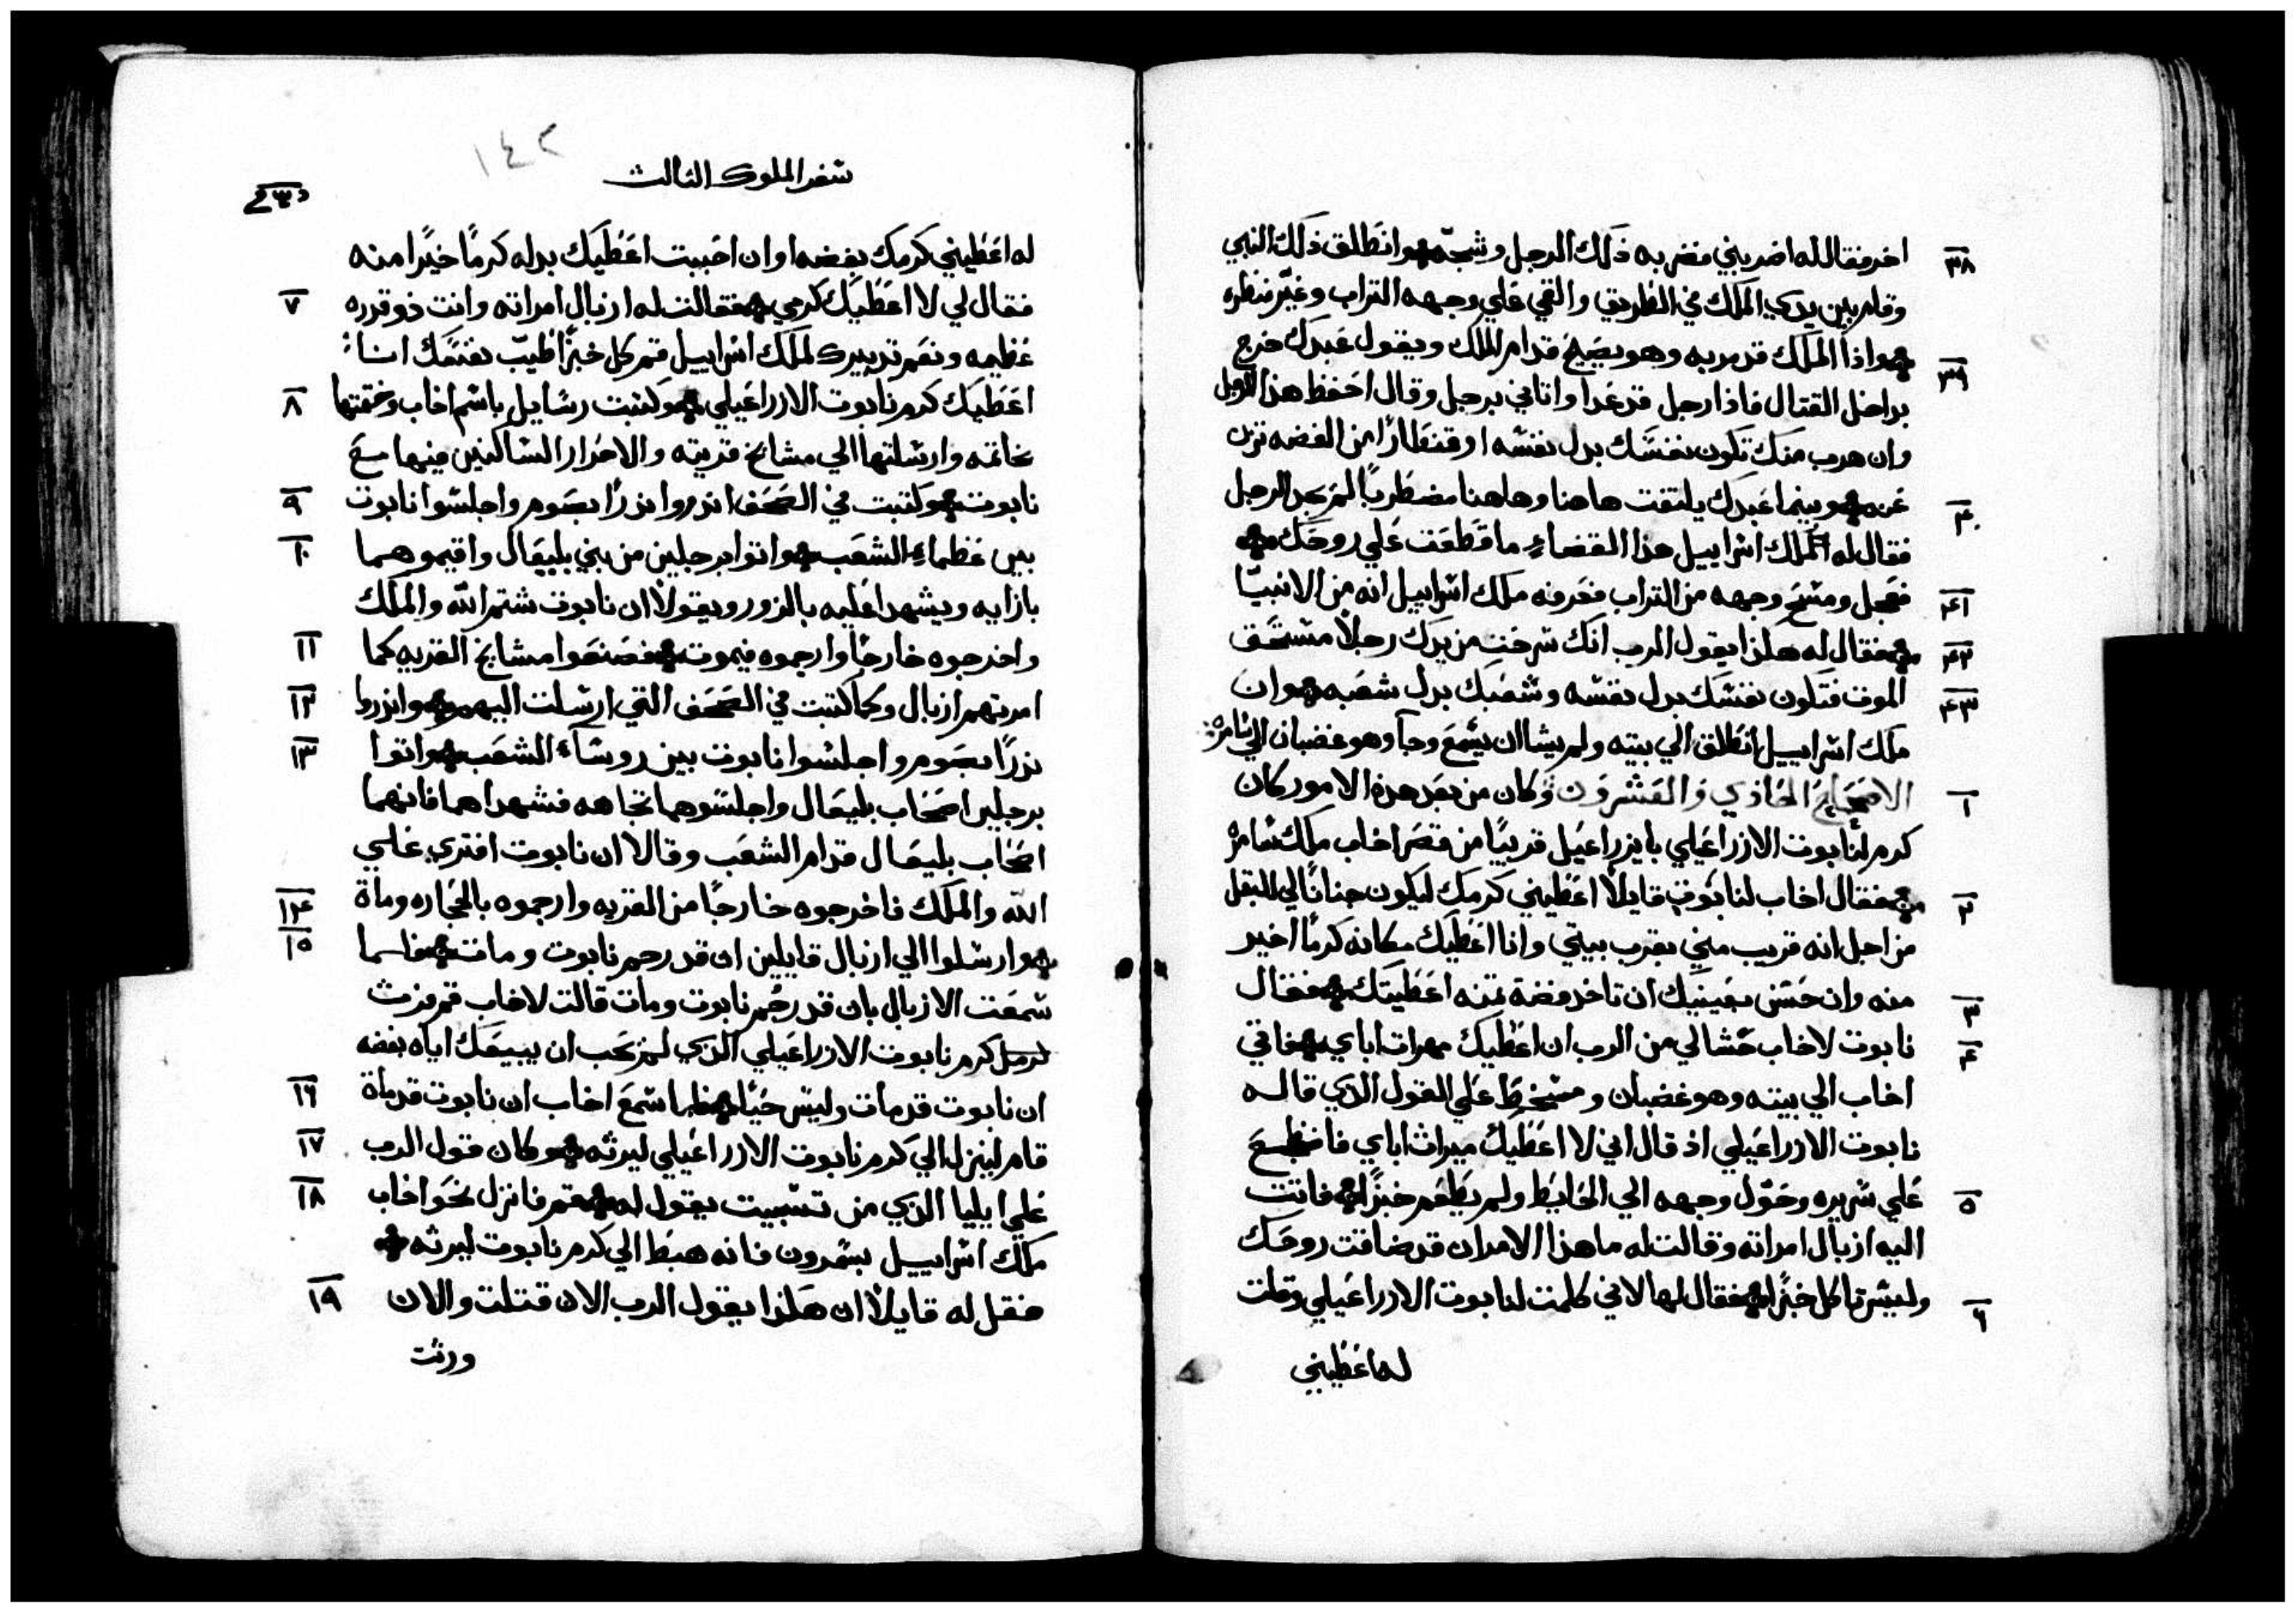 اخر فقال له اضربني فضربه ذلك الرجل وشجّه وانطلق ذلك النبي
٣٨
وقام بين يدي الملك في الطريق والقي علي وجهه التراب وغيّر منظره
واذا الملك قد مر به وهو يصيح قدام الملك ويقول عبدك خرج
٣٩
براحل القتال فاذا رجل قد عدا واتاني برجل وقال احفظ هذا الرجل
وان هرب منك تكون نفسك بدل نفسه او قنطارًا من الفضه تزن
عنه وبينما عبدك يلتفت هاهنا وهاهنا مضطربًا لم يجد الرجل
٤٠
فقال له ملك اسراييل هذا القضاء ما قطعت علي روحك
فعجل ومسح وجهه من التراب فعرفه ملك اسراييل انه من الانبيّا
٤١
فقال له هكذا يقول الرب انك سرحت من يدك رجلاً مستحق
٤٢
الموت فتكون نفسك بدل نفسه وشعبك بدل شعبه وان
٤٣
ملك اسراييل انطلق الي بيته ولم يشا ان يسمع وجآ وهو غضبان الي سامره
الاصحاح الحادي والعشرون وكان من بعد هذه الامور كان
١
كرم لنابوت الازراعيلي بايزراعيل قريبًا من قصر اخاب ملك سامره
فقال اخاب لنابوت قايلاً اعطيني كرمك ليكون جنانًا لي للبقل
٢
من اجل انه قريب مني بقرب بيتي وانا اعطيك مكانه كرمًا اخير
منه وان حسن بعينيك ان تاخد فضة ثمنه اعطيتك فقال
٣
نابوت لاخاب حشا لي من الرب ان اعطيك ميرات اباي فاتي
٤
اخاب الي بيته وهو غضبان ومسخط علي القول الذي قاله
نابوت الازراعيلي اذ قال اني لا اعطيك ميراث اباي فاضطجع
علي سريره وحوّل وجهه الي الحايط ولم يطعم خبزًا فاتت
٥
اليه ازبال امراته وقالت له ما هذا الامر ان قد ضاقت روحك
وليس تاكل خبزًا فقال لها لاني كلمت لنابوت الازراعيلي وقلت
٦
له اعطيني
سفر الملوك الثالث
١٤٢
له اعطيني كرمك بفضه او ان احببت اعطيك بدله كرمًا خيرًا منه
فقال لي لا اعطيك كرمي فقالت له ازبال امراته وانت ذو قدره
٧
عظيمه ونعم تدبيرك لملك اسراييل قم كل خبزًا طيّب نفسك انا
اعطيك كرم نابوت الازراعيلي وكتبت رسايل باسم اخاب وختمتها
٨
بخاتمه وارسلتها الي مشايخ قريته والاحرار الساكنين فيها مع
نابوت وكتبت في الصحف انذروا نذرًا بصوم واجلسوا نابوت
٩
بين عظماء الشعب واتوا برجلين من بني بليعال واقيموهما
١٠
بازايه ويشهدا عليه بالزور ويقولا ان نابوت شتم الله والملك
واخرجوه خارجًا وارجموه فيموت فصنعوا مشايخ القريه كما
١١
امرتهم ازبال وكما كتبت في الصحف التي ارسلت اليهم وانذروا
١٢
نذرًا بصوم واجلسوا نابوت بين روسآء الشعب واتوا
١٣
برجلين اصحاب بليعال واجلسوهما تجاهه فشهدا هما فانهما
اصحاب بليعال قدام الشعب وقالا ان نابوت افتري علي
الله والملك فاخرجوه خارجًا من القريه وارجموه بالحجاره وماة
١٤
وارسلوا الي ازبال قايلين ان قد رجم نابوت ومات فلما
١٥
سمعت الازبال بان قد رجم نابوت ومات قالت لاخاب قم فرث
كرم نابوت الازراعيلي الذي لم يحب ان يبيعك اياه بفضه
ان نابوت قد مات وليس حيًا فلما سمع اخاب ان نابوت قد ماة
١٦
قام لينزل الي كرم نابوت الازراعيلي ليرثه وكان قول الرب
١٧
علي ايليا الذي من تسبيت يقول له قم فانزل نحو اخاب
١٨
ملك اسراييل بسمرون فانه هبط الي كرم نابوت ليرثه
فقل له قايلاً ان هكذا يقول الرب الان قتلت والان
١٩
ورثت